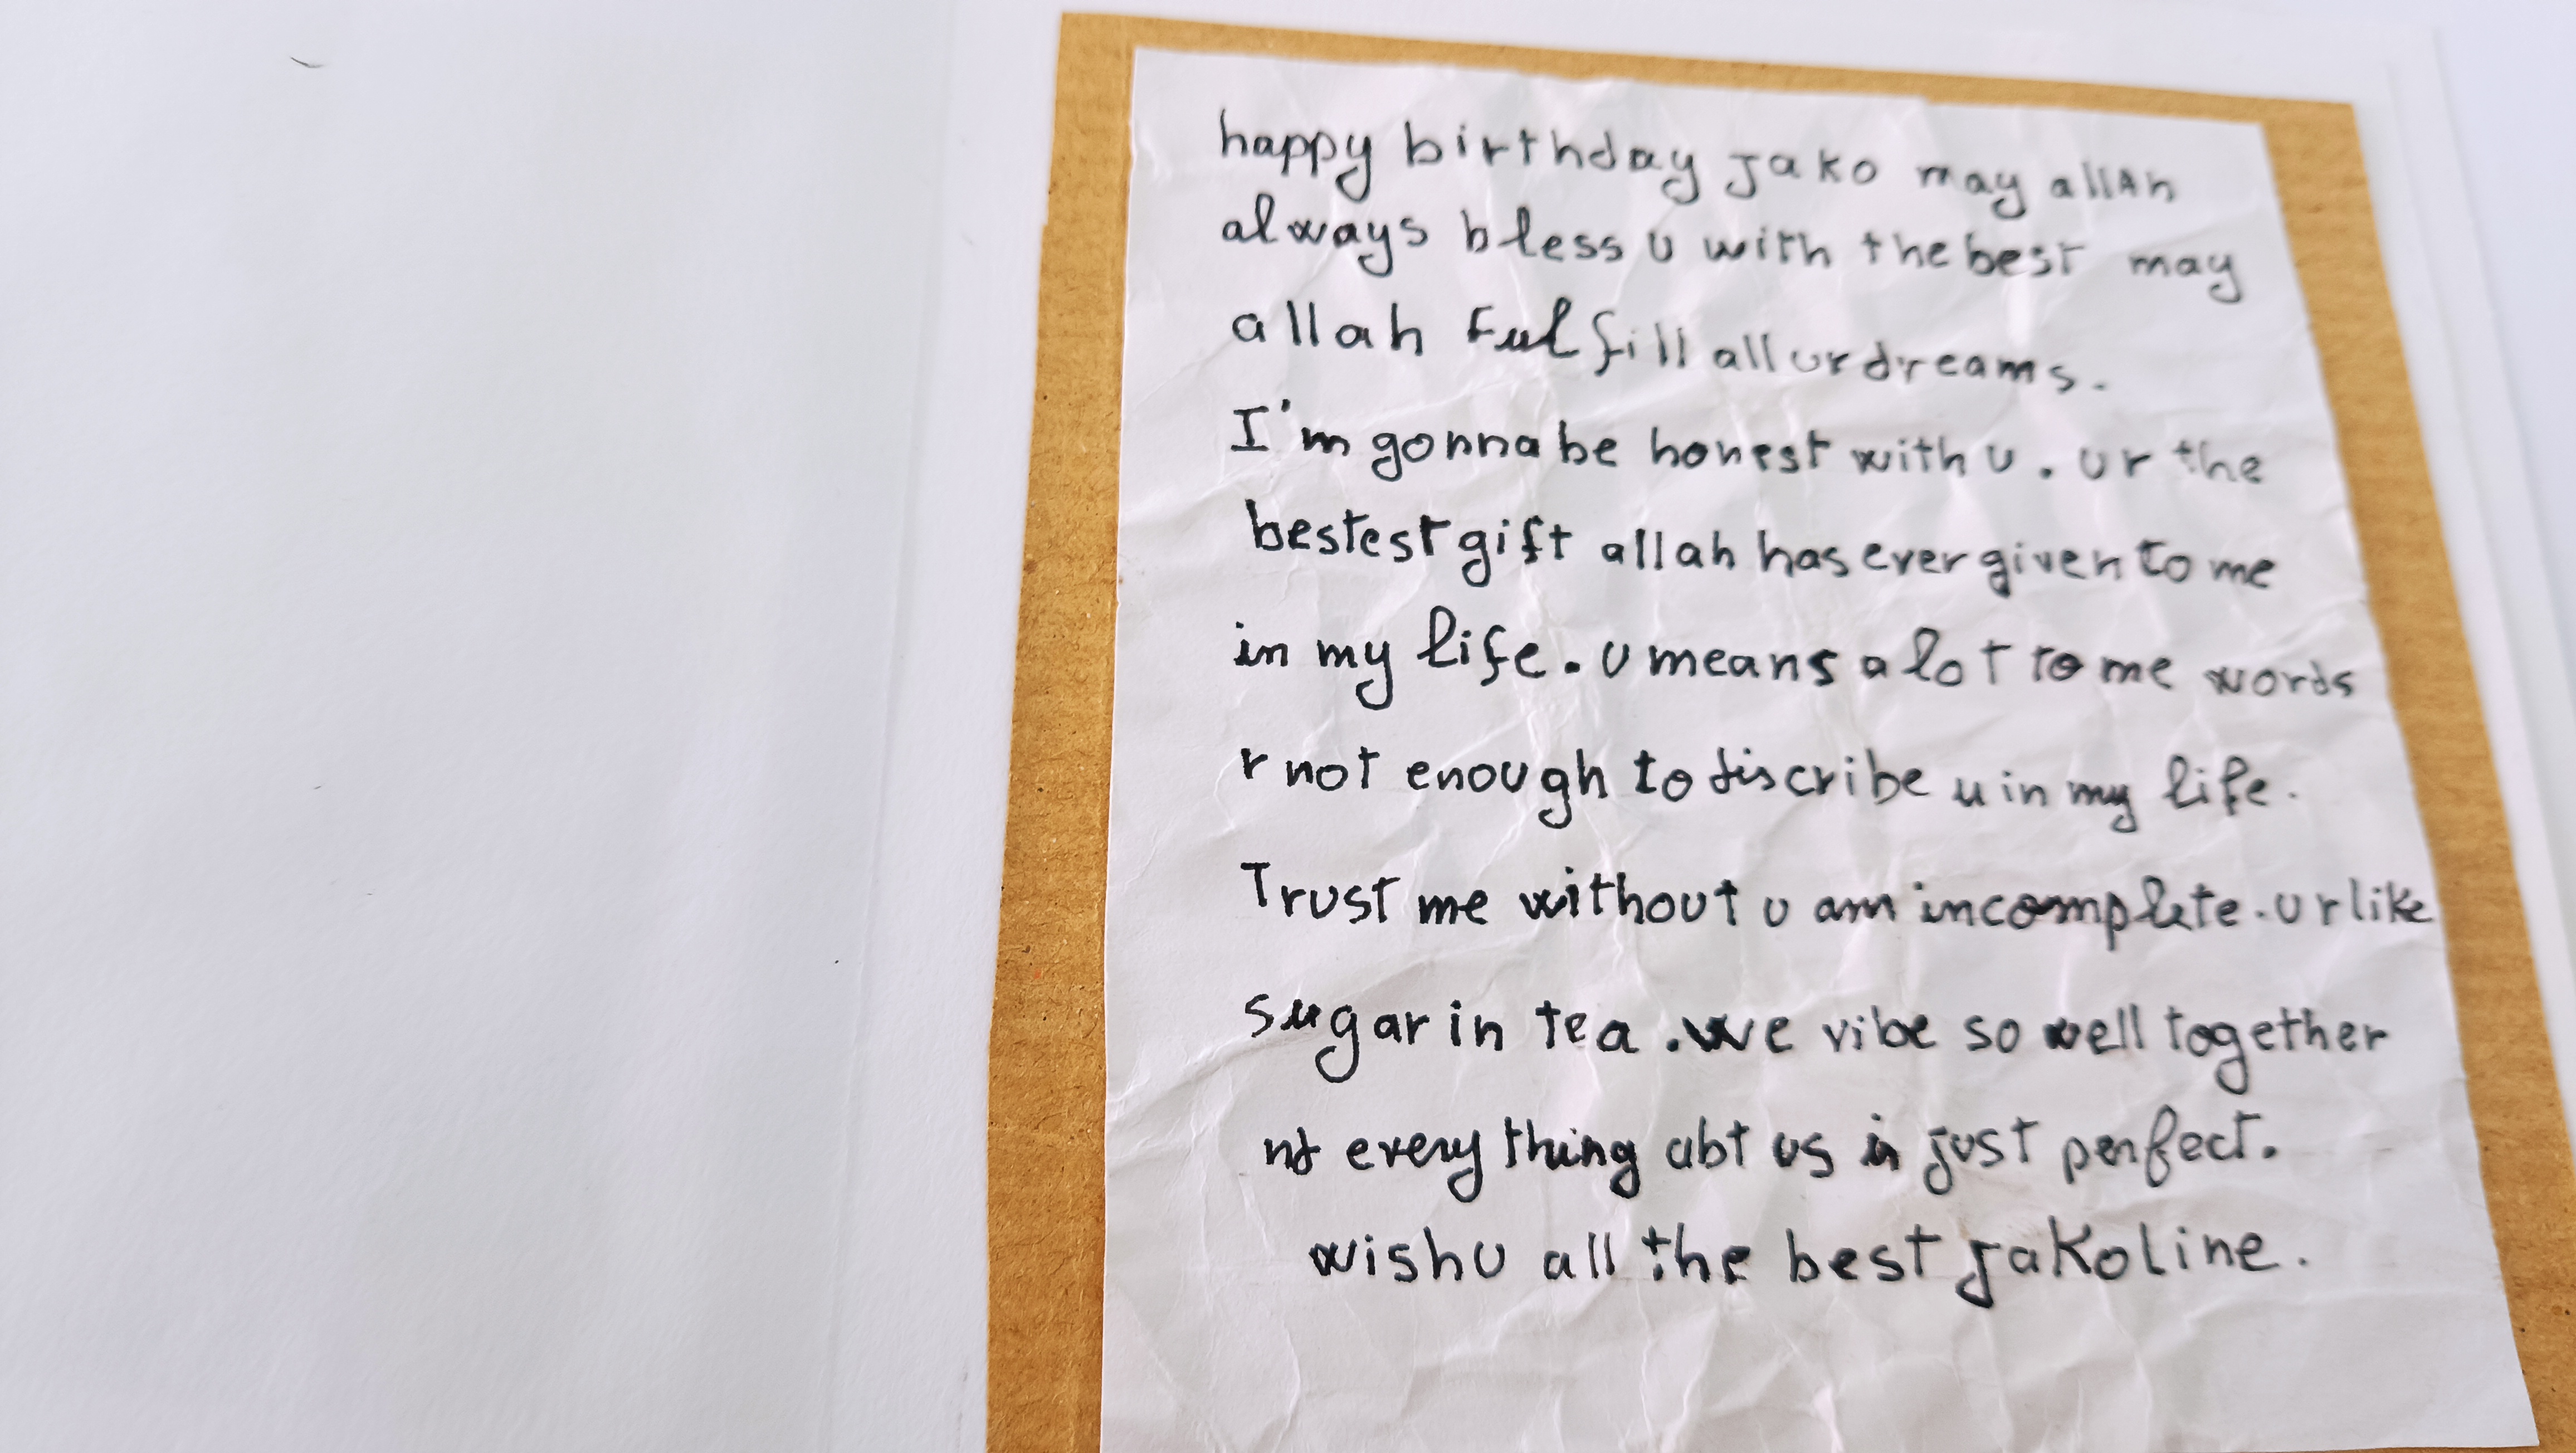 happy birthday Jako may allAh
always bless u with the best may
allah Fulfill all ur dreams.
I'm gonna be honest with u. ur the
bestest gift allah has ever given to me
in my life. u means a lot to me words
r not enough to discribe u in my life.
Trust me without u am incomplete. ur like
sugar in tea. we vibe so well together
nd every thing abt us is just perfect.
wish u all the best jakoline.